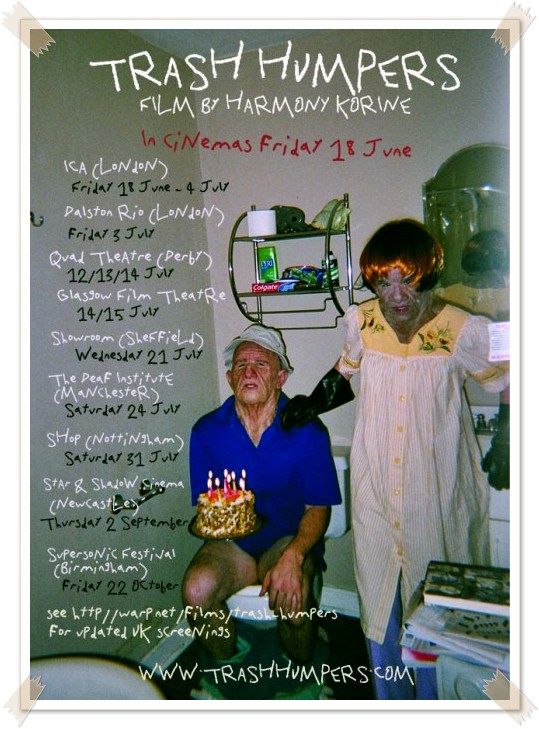 TRASH HUMPERS
FILM BY HARMONY KORINE
In CiNemas Friday 18 June
ICA (LoNdoN)
Friday 18 June - 4 July
Dalston Rio (LoNdoN)
Friday 3 July
Quad TheAtre (Derby)
12/13/14 July
Glasgow Film TheatRe
14/15 July
Showroom (SheffieLd)
Wednesday 21 July
The Deaf InstitutE
(MaNchesteR)
Saturday 24 July
SHop (NottiNgham)
Saturday 31 July
StAr & ShadoW Cinema
(NewCastLe)
Thursday 2 September
SuperSoNiC FeStival
(Birmingham)
Friday 22 OCtober
see http//warp.net/films/trash-humpers
For updated UK screeNiNgs
WWW.TRASHHUMPERS.COM
Colgate